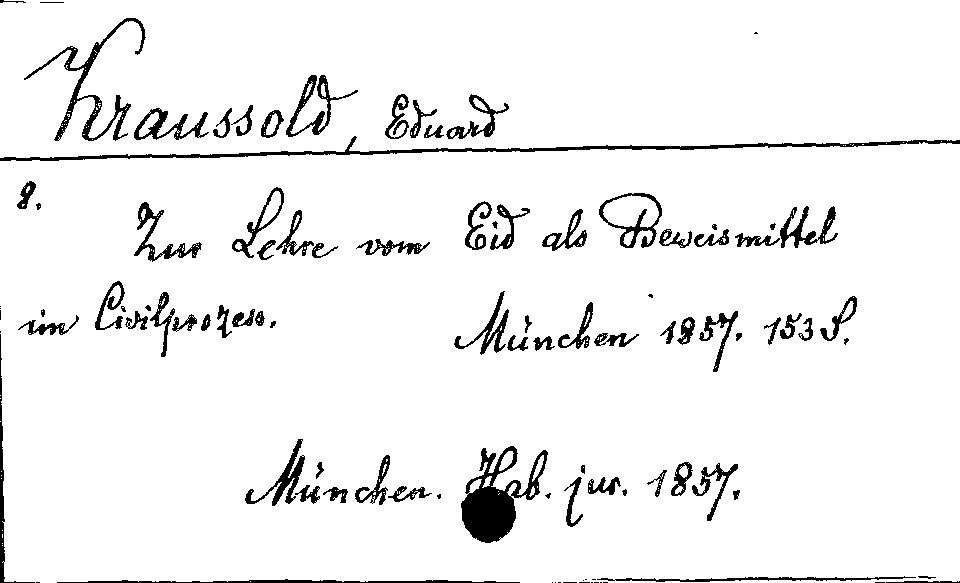 Kraussold, Eduard
8.
Zur Lehre vom Eid als Beweismittel
im Civilprozess. München 1857. 153 S.
München. Hab. jur. 1857.